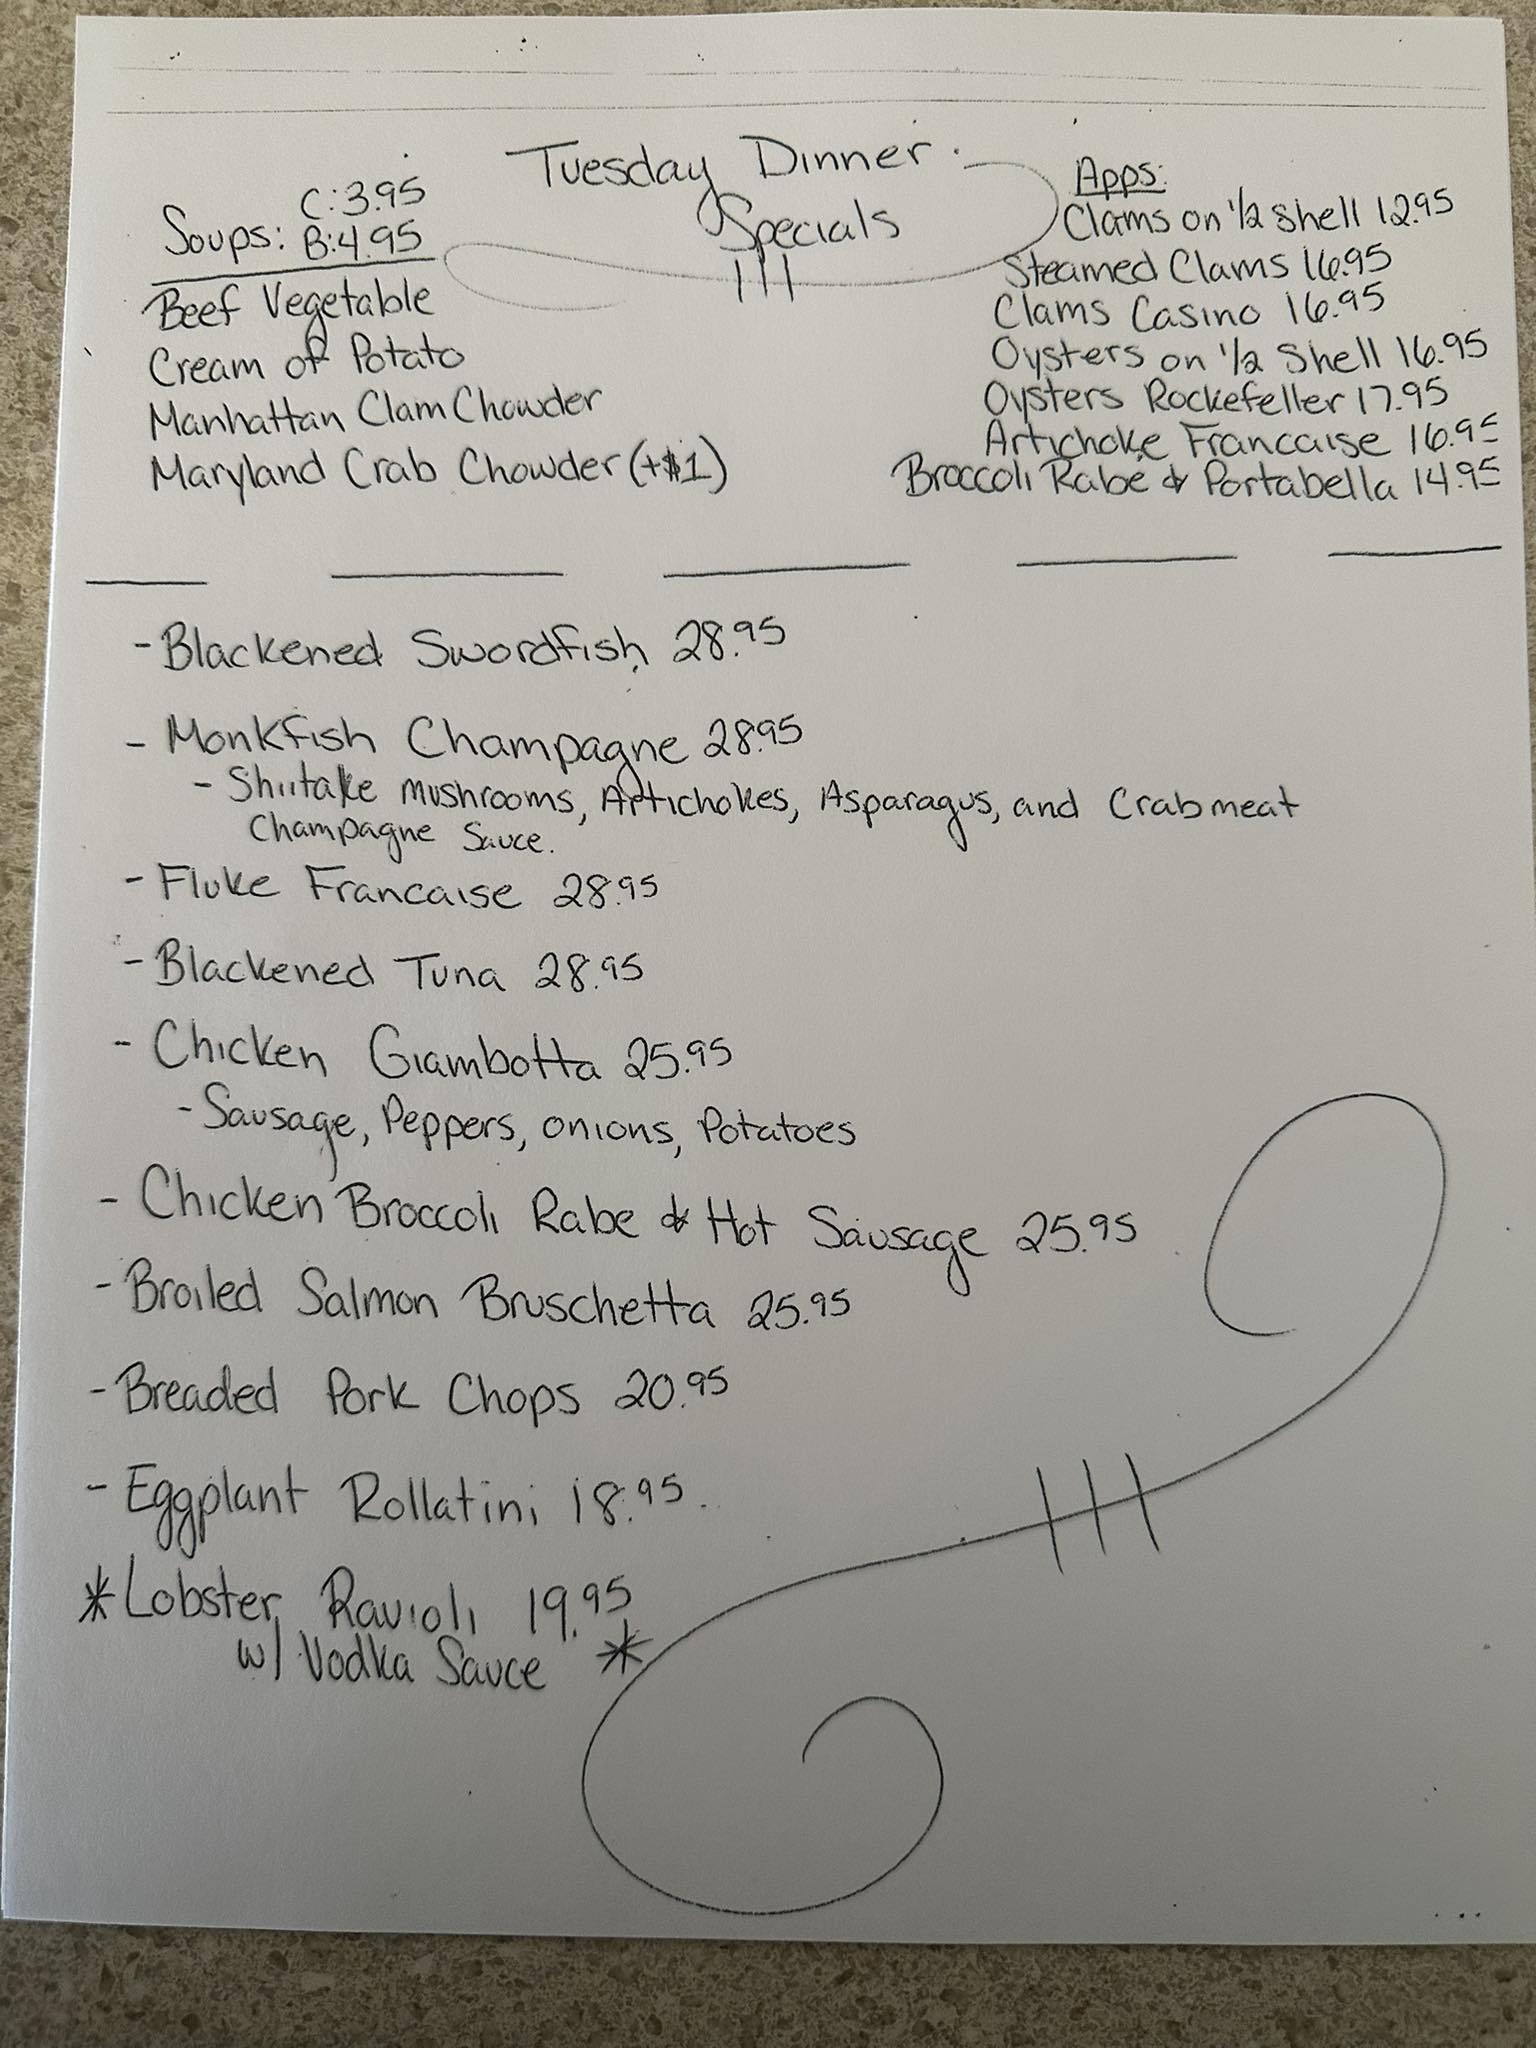 Tuesday Dinner
Specials
C: 3.95
Soups: B: 4.95
Beef Vegetable
Cream of Potato
Manhattan Clam Chowder
Maryland Crab Chowder (+$1)
Apps:
Clams on 1/2 Shell 12.95
Steamed Clams 16.95
Clams Casino 16.95
Oysters on 1/2 Shell 16.95
Oysters Rockefeller 17.95
Artichoke Francaise 16.95
Broccoli Rabe & Portabella 14.95
- Blackened Swordfish 28.95
- Monkfish Champagne 28.95
- Shiitake Mushrooms, Artichokes, Asparagus, and Crabmeat
Champagne Sauce.
- Fluke Francaise 28.95
- Blackened Tuna 28.95
- Chicken Giambotta 25.95
- Sausage, Peppers, onions, Potatoes
- Chicken Broccoli Rabe & Hot Sausage 25.95
- Broiled Salmon Bruschetta 25.95
- Breaded Pork Chops 20.95
- Eggplant Rollatini 18.95
* Lobster Ravioli 19.95
w/ Vodka Sauce *